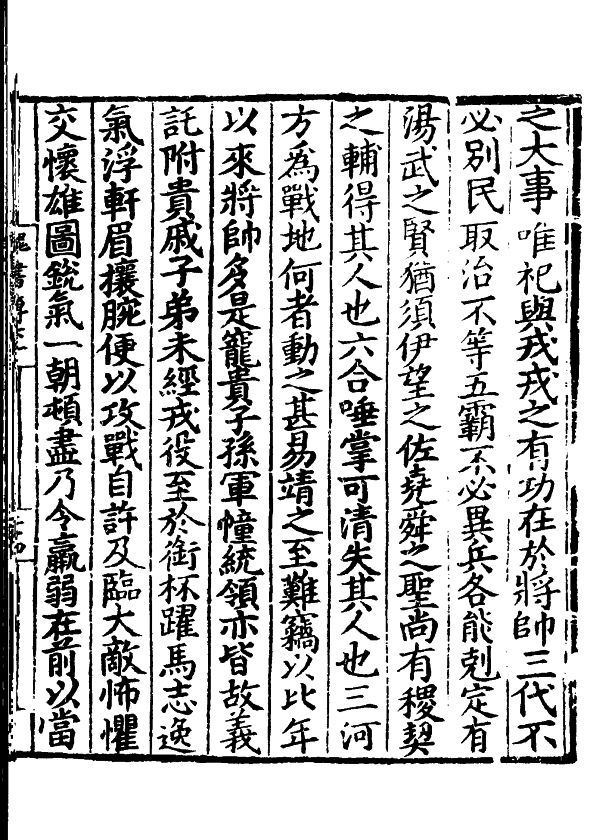 之大事唯祀與戎戎之有功在於將帥三代不
必別民取治不等五霸不必異兵各能剋定有
湯武之賢猶須伊望之佐堯舜之聖尚有稷契
之輔得其人也六合唾掌可清失其人也三河
方為戰地何者動之甚易靖之至難竊以比年
以來將帥多是寵貴子孫軍幢統領亦皆故義
託附貴戚子弟未經戎役至於銜杯躍馬志逸
氣浮軒眉攘腕便以攻戰自許及臨大敵怖懼
交懷雄圖銳氣一朝頓盡乃令羸弱在前以當